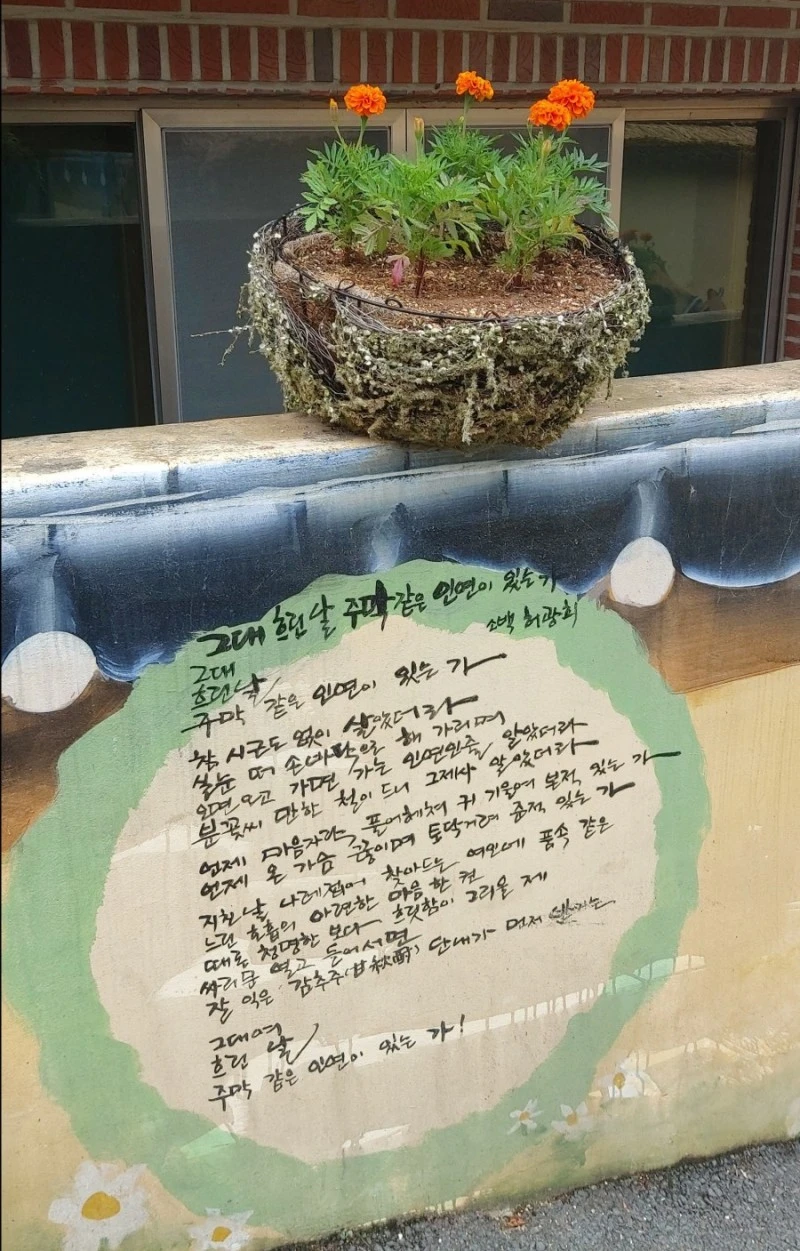 그대 흐린 날 주막 같은 인연이 있는가
소백 허광희
그대
흐린 날
주막 같은 인연이 있는 가
참 시근도 없이 살았더라
실눈 떠 손바닥으로 해 가리며
인연 오고 가면 가는 인연인줄 알았더라
분꽃씨 만한 철이 드니 그제사 알았더라
언제 마음자락 풀어헤쳐 귀 기울여 본적 있는 가
언제 온 가슴 끓이며 토닥거려 준적 있는 가
지친 날 나래접어 찾아드는 여인에 품속 같은
느린 호흡의 아련한 마음 한 켠
때론 청명한 보다 흐릿함이 그리울 제
싸리문 열고 들어서면
잘 익은 감추주(甘秋酎) 단내가 먼저
그대여
흐린 날
주막 같은 인연이 있는 가!